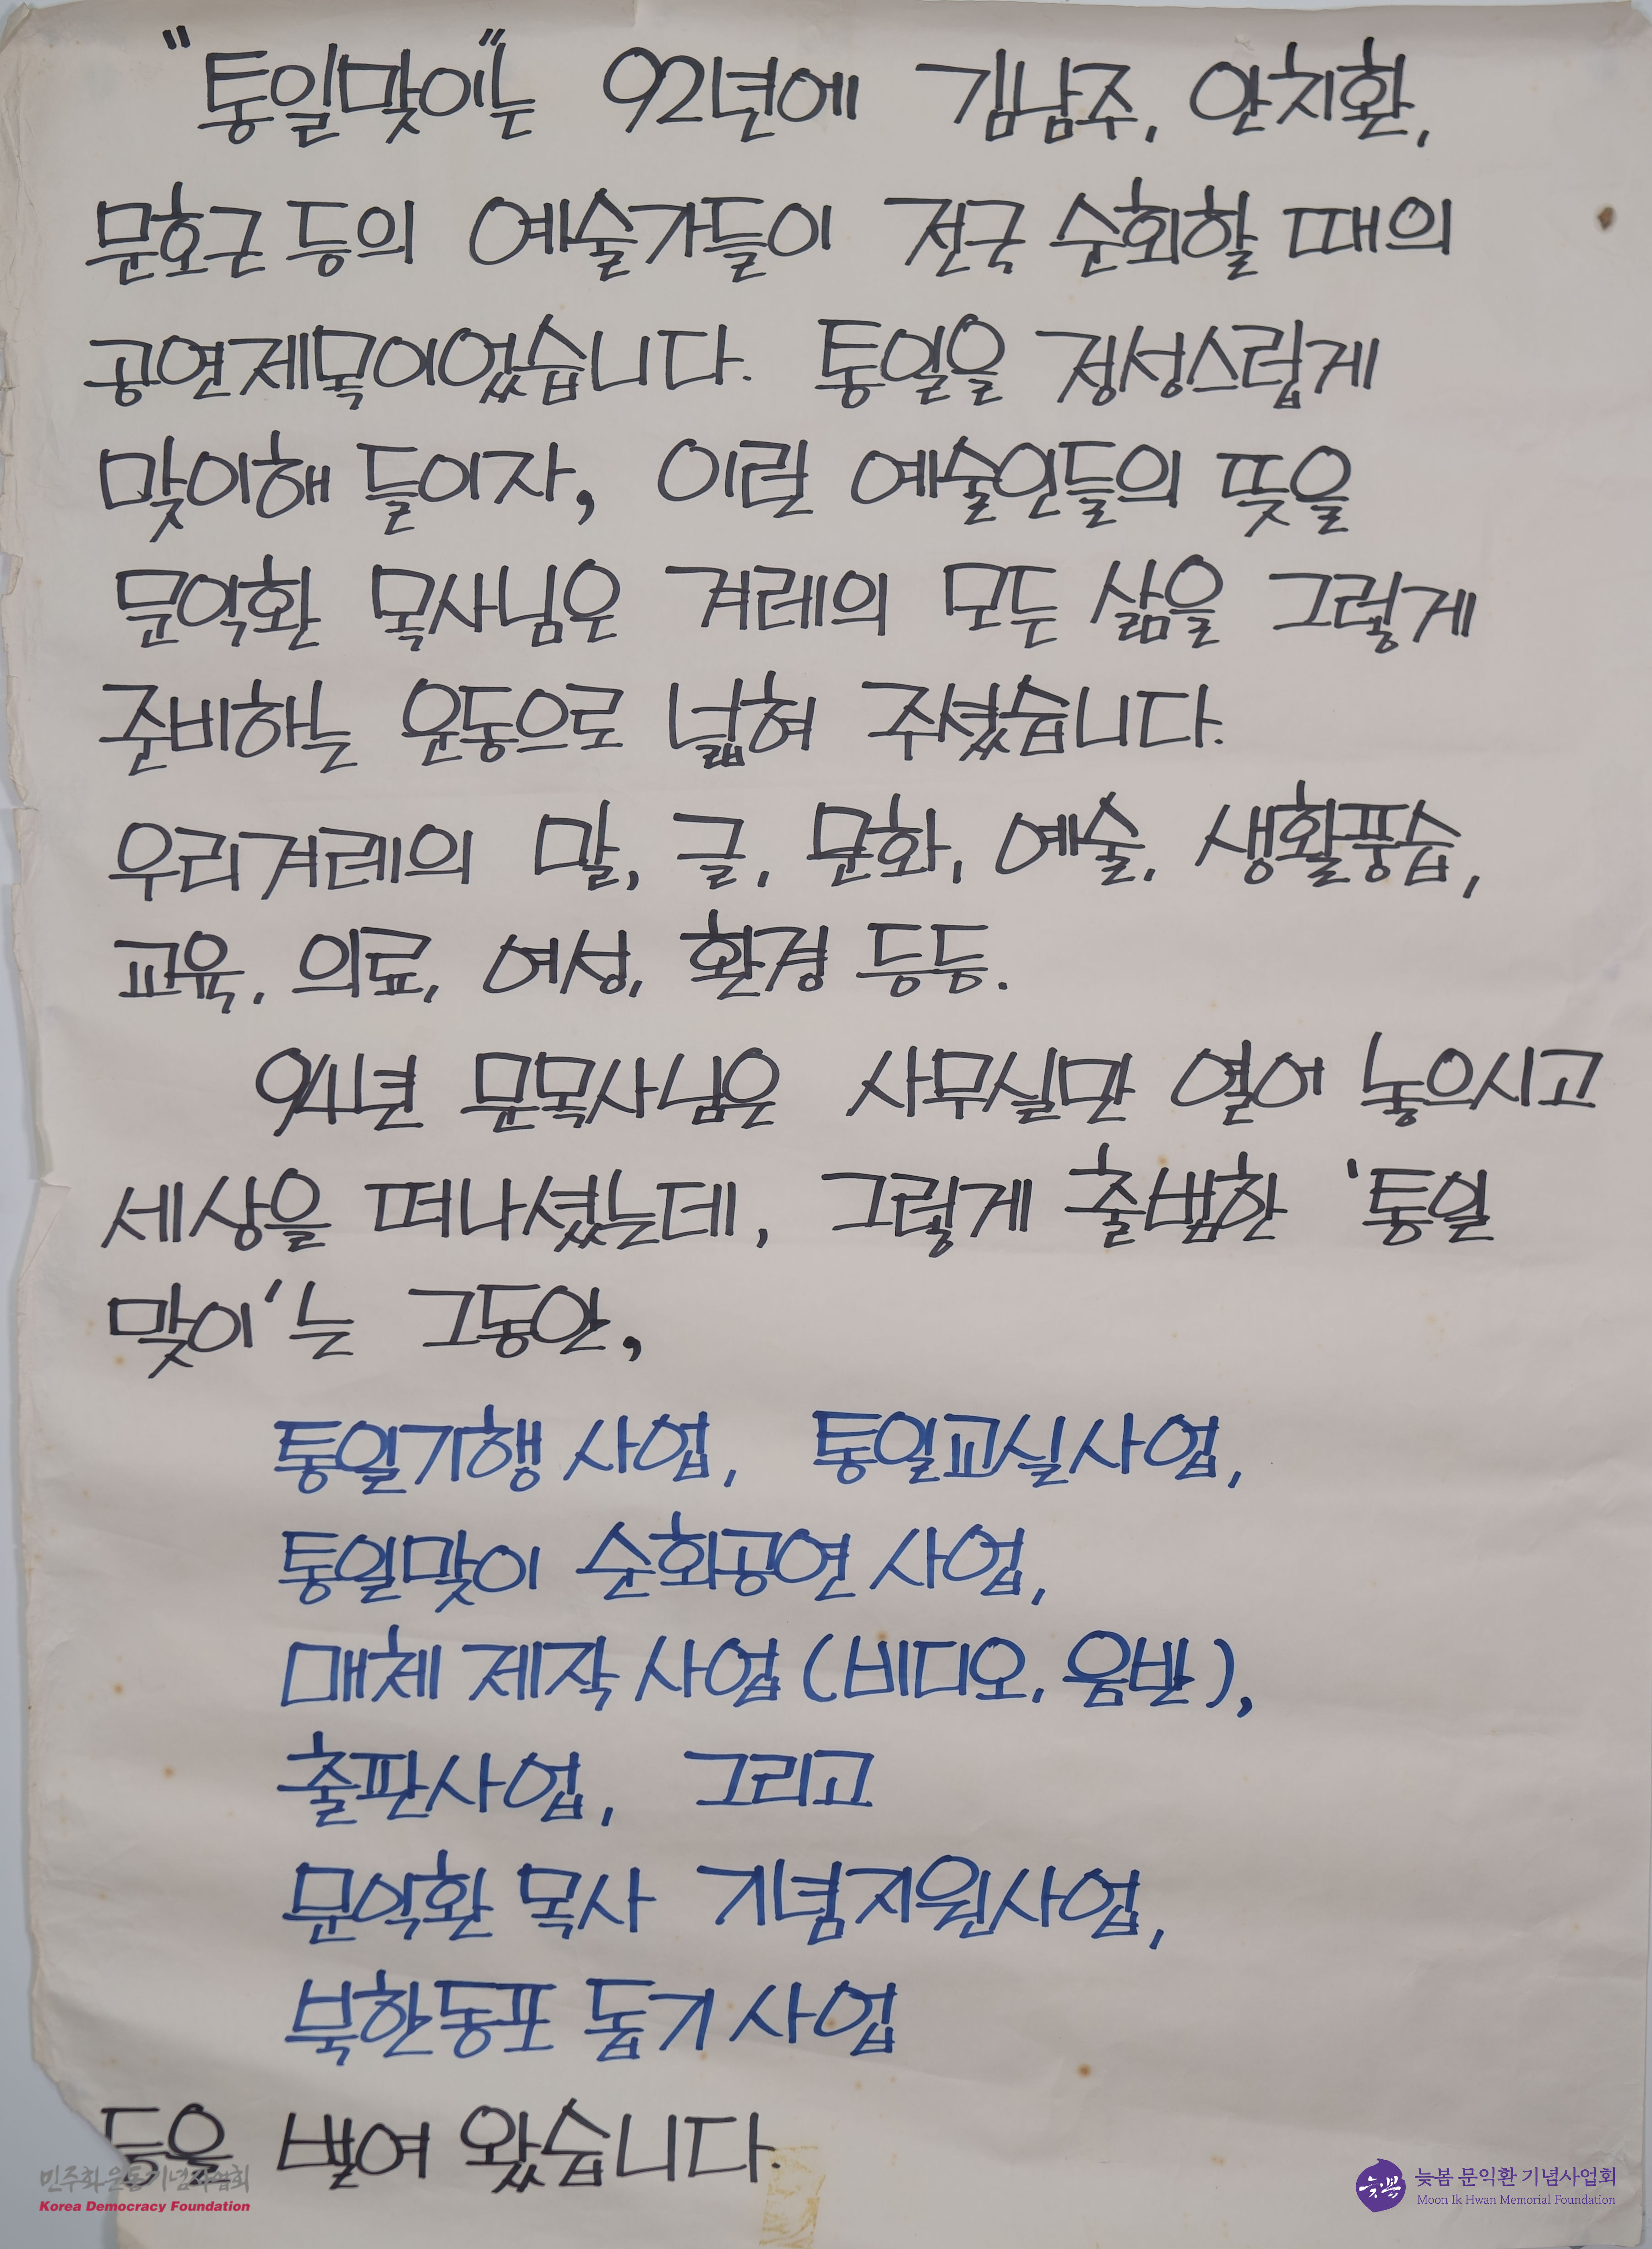 "통일맞이"는 92년에 김남주, 안치환,
문호근 등의 예술가들이 전국 순회할 때의
공연제목이었습니다. 통일을 정성스럽게
맞이해 들이자, 이런 예술인들의 뜻을
문익환 목사님은 겨레의 모두 삶을 그렇게
준비하는 운동으로 넓혀 주셨습니다.
우리겨레의 말, 글, 문화, 예술, 생활풍습,
교육, 의료, 여성, 환경 등등.
94년 문목사님은 사무실만 열어 놓으시고
세상을 떠나셨는데, 그렇게 출범한 '통일
맞이'는 그동안,
통일기행 사업, 통일교실사업,
통일맞이 순회공연 사업,
매체 제작 사업 (비디오, 음반),
출판사업, 그리고
문익환 목사 기념지원사업,
북한동포 돕기 사업
등을 벌여 왔습니다.
민주화운동기념사업회
Korea Democracy Foundation
늦봄
늦봄 문익환 기념사업회
Moon Ik Hwan Memorial Foundation